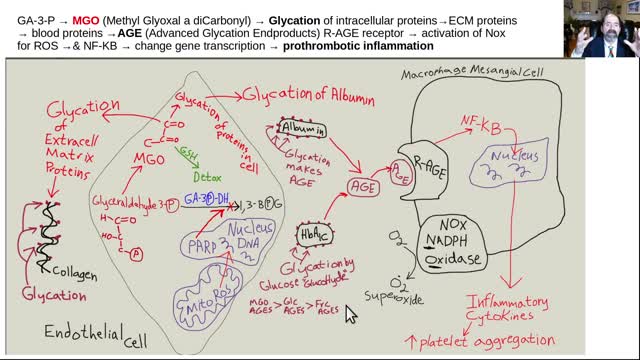 GA-3-P → MGO (Methyl Glyoxal a diCarbonyl) → Glycation of intracellular proteins→ECM proteins
→ blood proteins →AGE (Advanced Glycation Endproducts) R-AGE receptor → activation of Nox
for ROS →& NF-KB → change gene transcription → prothrombotic inflammation
Macrophage Mesangial Cell
Glycation
of
Extracell
Matrix
Proteins
Glycation of proteins in cell
Glycation of Albumin
C=O
C=O
MGO
GSH
Detox
Glyceraldehyde 3-P
GA-3P-DH
1,3-BPG
H-C=O
HO-C
C-P
PARP
Nucleus
DNA
Mito
ROS
Collagen
Glycation
Endothelial Cell
Albumin
Glycation
makes
AGE
AGE
AGE
R-AGE
NF-KB
Nucleus
HbA1C
Glycation by
Glucose "Glucohyde"
MGO AGES > Glc AGES > Frc AGES
O2
O2
Superoxide
NOX
NADPH
Oxidase
Inflammatory
Cytokines
↑ platelet aggregation